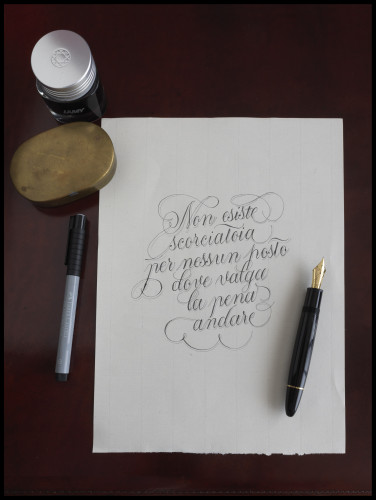 LAMY
Non esiste
scorciatoia
per nessun posto
dove valga
la pena
andare